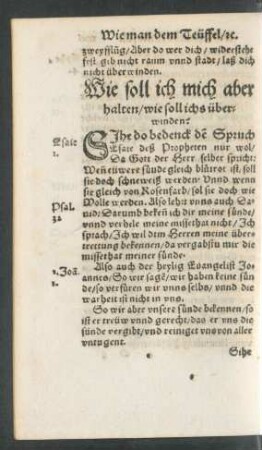 Wie man dem Teüffel/ıc.
zweyflüg/Aber do wer dich/widersteht
fest gib nicht raum vnnd stadt/laß dich
nicht überwinden.
Wie soll ich mich aber
halten/wie soll ichs über
winden?
Esaie
1.
Sihe do bedenck dē Spruch
Esaie deß Propheten nur wol/
Da Gott der Herr selber spricht:
Wen eüwere sünde gleich blütrot ist, soll
sie doch schneeweiß werden: Vnnd wenn
sie gleich von Rosenfarb/sol sie doch wie
Wolle werden. Also lehrt vnns auch Da-
Psal.
32
uid: Darumb bekeñ ich dir meine sünde/
vnnd verhele meine missethat nicht/ Ich
sprach/Ich wil dem Herren meine über-
trettung bekennen/da vergabstu mir die
missethat meiner sünde.
1. Joā.
1.
Also auch der heylig Euangelist Jo-
annes/So wir sagē/wir haben keine sün
de/so verfüren wir vnns selbs/vnnd die
warheit ist nicht in vns.
So wir aber vnsere sünde bekennen/so
ist er treüw vnnd gerecht/das er vns die
sünde vergibt/vnd reiniget vns von aller
vntugent.
Sihe